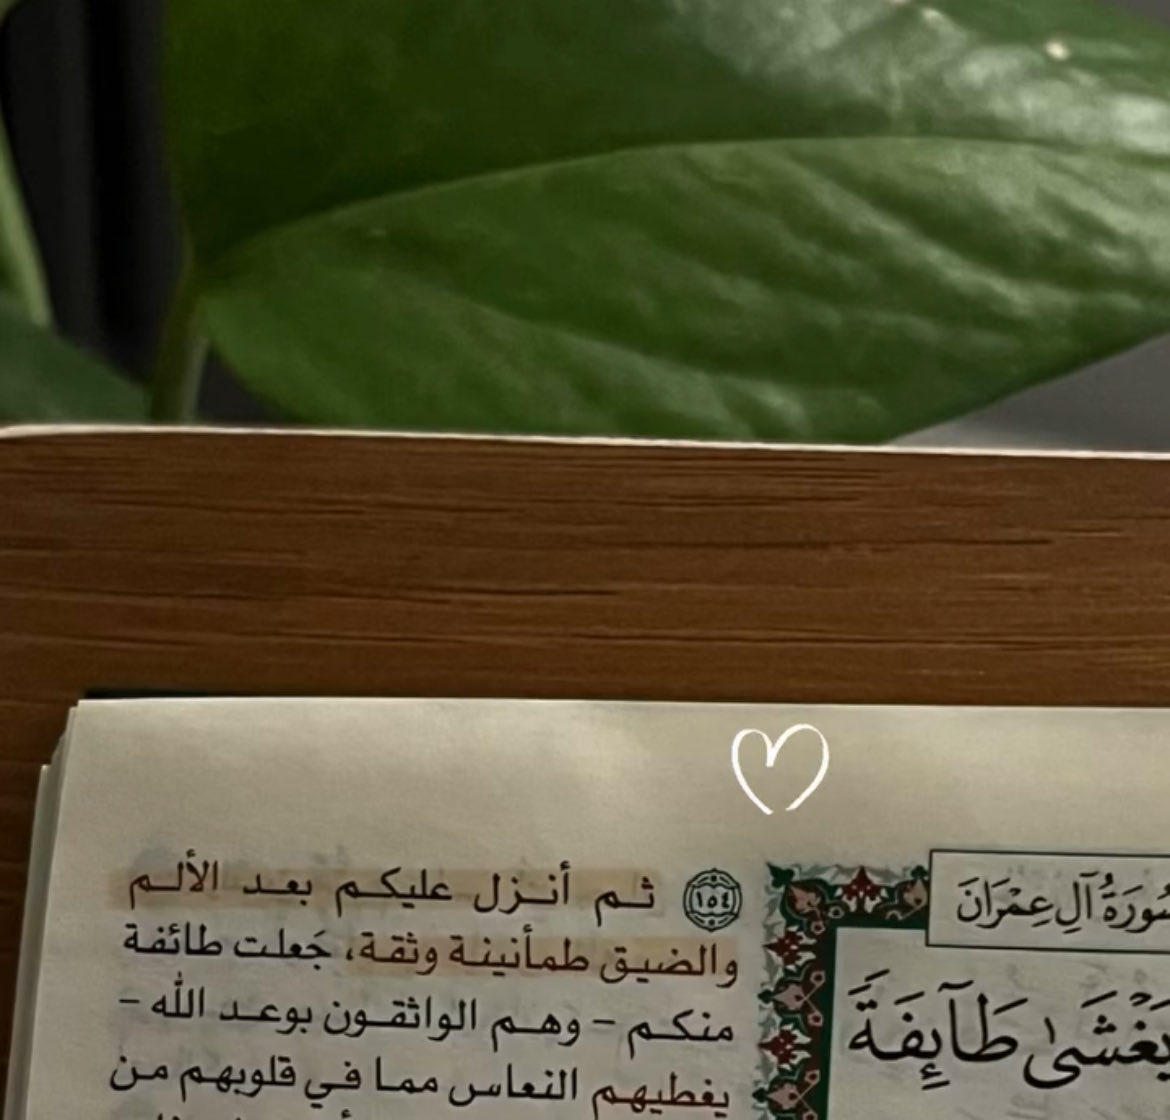 سُورَةُ آلِ عِمْرَانَ
يَغْشَىٰ طَآئِفَةً
١٥٤ ثم أنزل عليكم بعد الألم
والضيق طمأنينة وثقة، جَعلت طائفة
منكم – وهم الواثقون بوعد الله –
يغطيهم النعاس مما في قلوبهم من